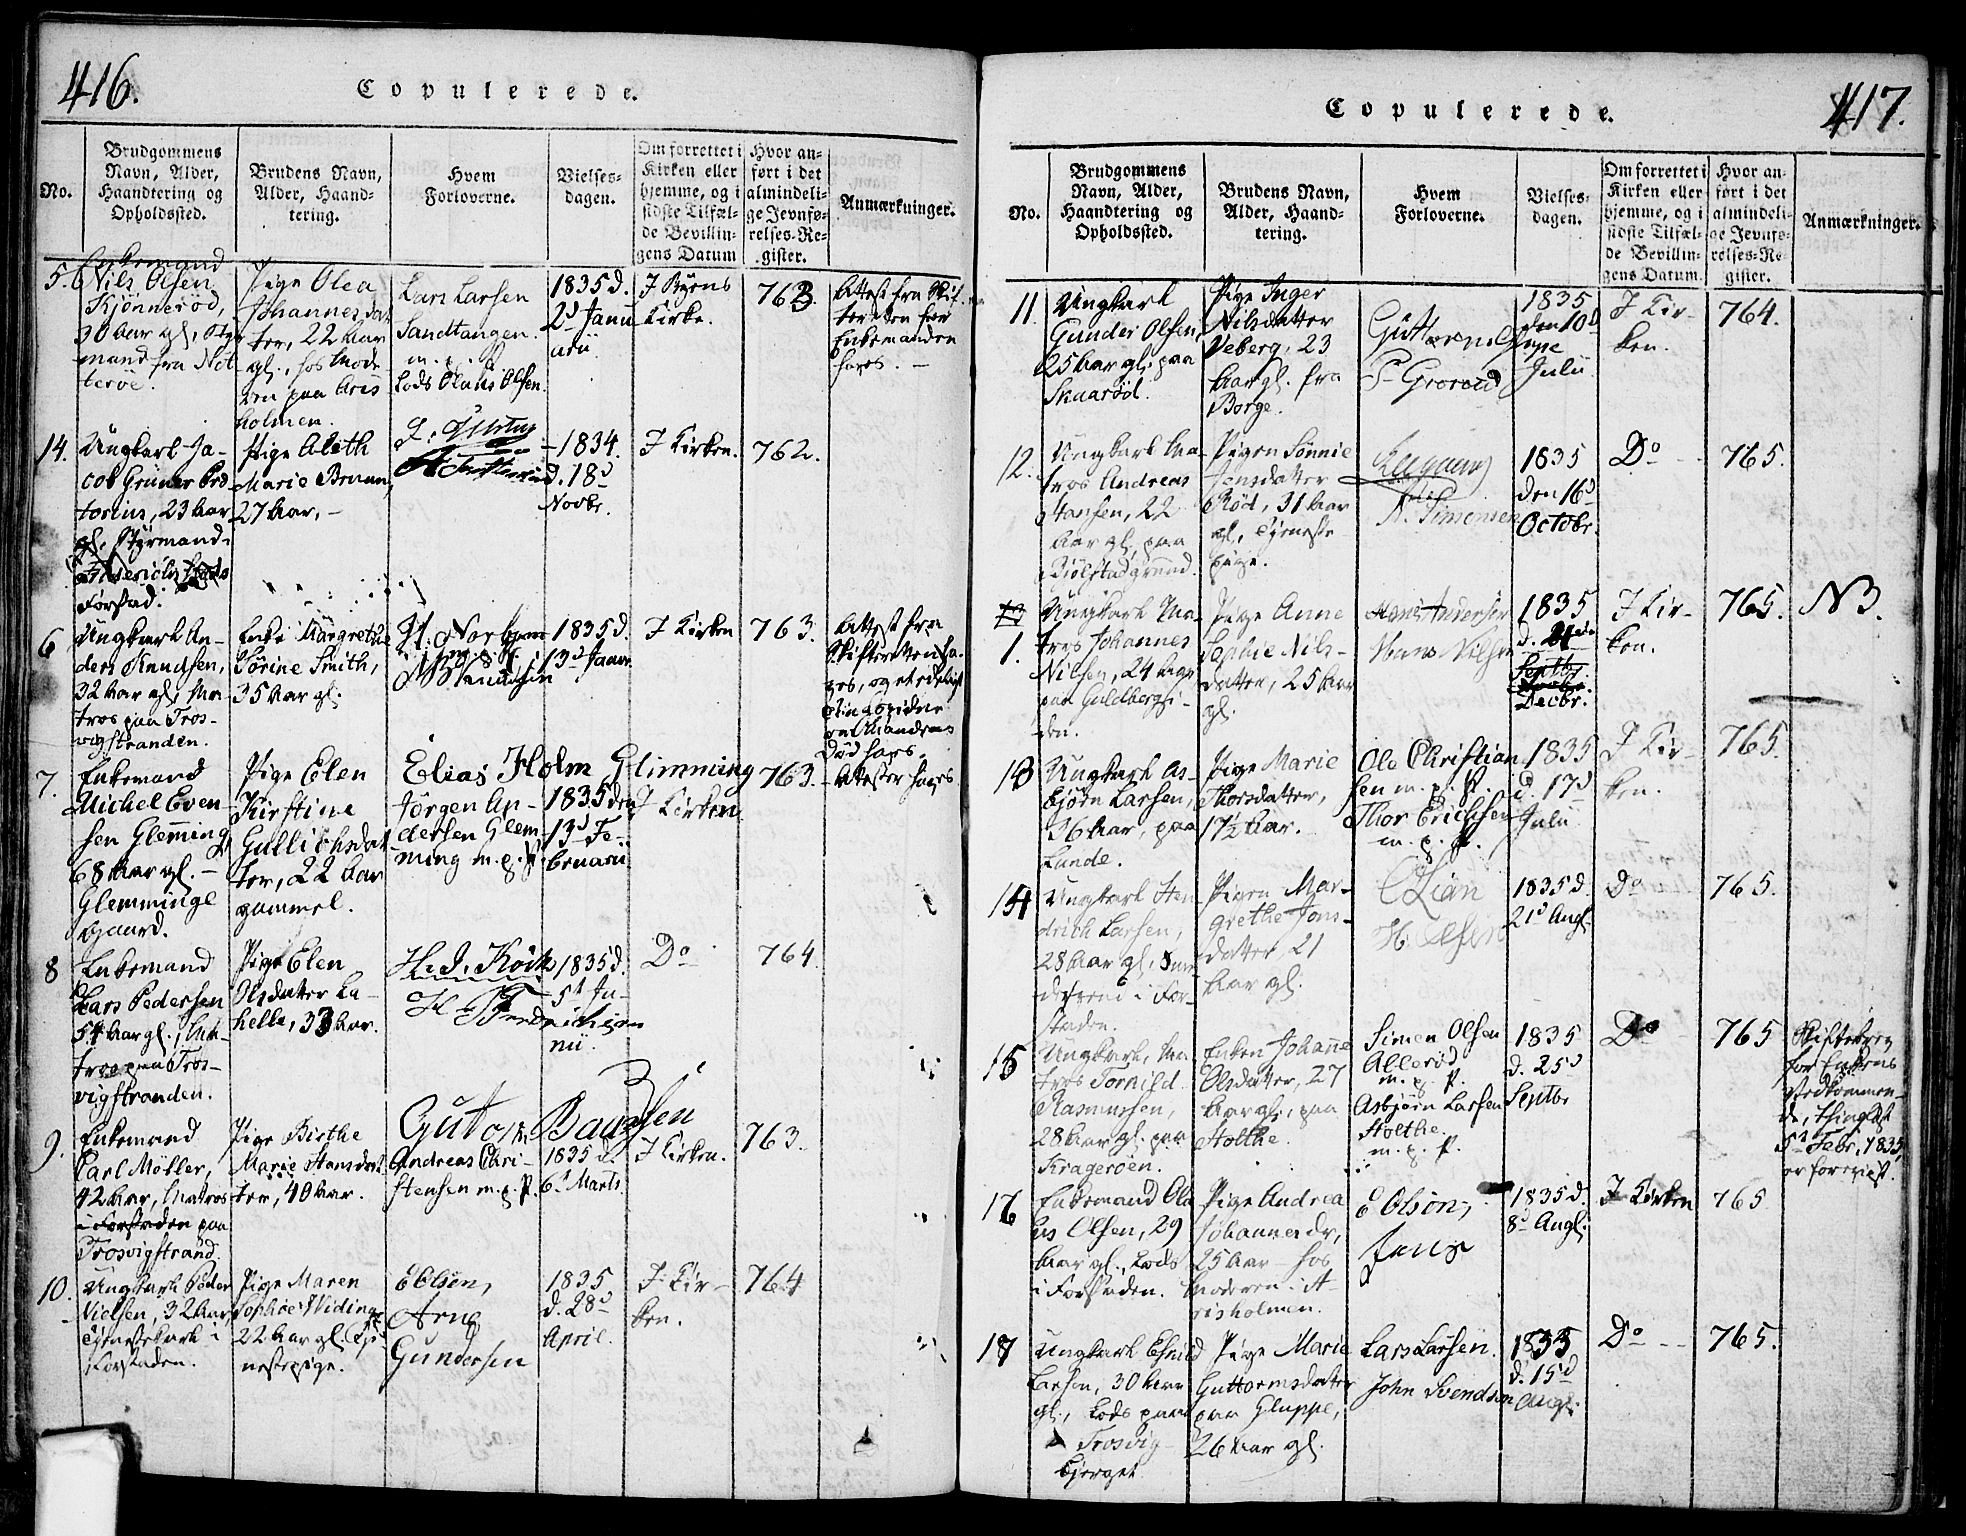 416.
Copulerede.
No.
Brudgommens
Navn, Alder,
Haandtering og
Opholdssted.
Brudens Navn,
Alder, Haand-
tering.
Hvem
Forloverne.
Vielses-
dagen.
Om forrettet i
Kirken eller
hjemme, og i
sidste Tilfæl-
de Bevillin-
gens Datum
Hvor an-
ført i det
almindeli-
ge Jevnfø-
relses-Re-
gister.
Anmærkninger.
5.
Enkemand
Nils Olsen
Kjønnerød,
30 Aar gl, Styr
mand fra Not
terøe.
Pige Olea
Johannesdat
ter, 22 Aar
gl., hos Mode-
ren paa Aris
holmen.
Lars Larsen
Sandtangen
m. p. P.
Lods Olaus Olsen.
1835 d.
2d Janu
arii
I Byens
Kirke.
763.
Attest fra Skif-
teretten for
Enkemanden
haves. -
14.
Ungkarl Ja-
cob Grüner Præ-
torius, 23 Aar
gl. Styrmand
Forstad.
Pige Aleth
Marie Bruun,
27 Aar, -
1834.
d. 18d
Novbr.
I Kirken.
762.
6
Ungkarl An-
ders Knudsen,
32 Aar gl, Ma-
tros paa Tros-
vigstranden.
Enke Margrethe
Sørine Smith,
35 Aar gl.
1835 d.
13d Januar
I Kirken
763.
Attest fra
Skifteretten ha-
ves, og et edeligt
om Mandens
Død haves.
7.
Enkemand
Michel Even-
sen Glemming,
68 Aar gl. -
Glemminge
Gaard.
Pige Elen
Kirstine
Gullichsdat
ter, 22 Aar
gammel.
Elias Holm Glimming
Jörgen An-
dersen Glem-
ming m. p. P.
1835 den
13d Fe-
bruarii
I Kirken
763.
Attester haves
8
Enkemand
Lars Pedersen
54 Aar gl., Ma-
tros paa Tros-
vigstranden.
Pige Elen
Olsdatter La-
helle, 33 Aar.
H. J. Koch
H Fredrichsen
1835 d.
5t Ju-
nii.
Do
764.
9.
Enkemand
Carl Möller,
42 Aar, Matros
i Forstaden paa
Trosvigstrand.
Pige Birthe
Marie Hansdat
ter, 40 Aar.
Andreas Chri-
stensen m. p. P.
1835 d.
6t Marts.
I Kirken.
763.
10.
Ungkarl Peder
Nielsen, 32 Aar,
Tjenestekarl i
Forstaden.
Pige Maren
Sophie Widing
22 Aar gl. Tje-
nestepige.
E Olsen,
Arne
Gundersen
1835
d. 28d
April.
I Kir-
ken.
764
417.
Copulerede.
No.
Brudgommens
Navn, Alder,
Haandtering og
Opholdssted.
Brudens Navn,
Alder, Haand-
tering.
Hvem
Forloverne.
Vielses-
dagen.
Om forrettet i
Kirken eller
hjemme, og i
sidste Tilfæl-
de Bevillin-
gens Datum.
Hvor an-
ført i det
almindeli-
ge Jevnfø-
relses-Re-
gister.
Anmærkninger.
11.
Ungkarl
Gunder Olsen,
25 Aar gl. paa
Skaarød.
Pige Inger
Nilsdatter
Veberg, 23
Aar gl. fra
Borge.
Guttorm Gluppe
P Grorud
1835
den 10d
Julii
I Kir-
ken.
764.
12.
Ungkarl Ma-
tros Andreas
Hansen, 22
Aar gl. paa
Kiølstadgrund.
Pigen Sønnie
Jensdatter
Rød, 31 Aar
gl, Tjeneste
pige.
N. Simensen
1835
den 16d
Octobr.
Do
765.
1.
Ungkarl Ma-
tros Johannes
Nilsen, 24 Aar
paa Guldbergsi-
den.
Pige Anne
Sophie Nils-
datter, 25 Aar
gl.
Hans Andersen
Hans Nilsen
1835
d. 21de
Septbr.
Decbr.
I Kir-
ken.
765.
NB.
13
Ungkarl As-
bjørn Larsen,
36 Aar, paa
Lunde.
Pige Marie
Thorsdatter,
17½ Aar.
Ole Christian
sen m. p. P.
Thor Erichsen
m. p. P.
1835
d. 17d
Julii
I Kir-
ken.
765.
14
Ungkarl Hen
drich Larsen,
28 Aar gl, Snee-
dersvend i For-
staden.
Pigen Mar-
grethe Jons-
datter, 21
Aar gl.
C Lian
H. Olsen
1835 d.
21d Augl.
Do
765.
15
Ungkarl, Ma
tros Tornild
Rasmussen,
28 Aar gl. paa
Kragerøen.
Enken Johanne
Olsdatter, 27
Aar gl., paa
Stolthe.
Simen Olsen
Allerød
m. p. P.
Asbjørn Larsen
Stolthe.
m. p. P.
1835
d. 25d
Septbr
Do
765
Skiftebrev
for Enkens
Vedkommen-
de, thinglæst
5t Febr. 1835,
er foreviist.
16
Enkemand Ola
us Olsen, 29
Aar gl., Lods
i Forstaden.
Pige Andrea
Johannesdr,
25 Aar - hos
Moderen i A-
risholmen.
E Olson,
Jens
1835 d.
8d Augl.
I Kirken
765
17
Ungkarl Esmild
Larsen, 30 Aar
gl, Lods paa
Trosvig-
bjerget.
Pige Marie
Guttormsdatter
paa Gluppe,
26 Aar gl.
Lars Larsen.
John Svendsen
1835
d. 15d
Augl.
Do
765.